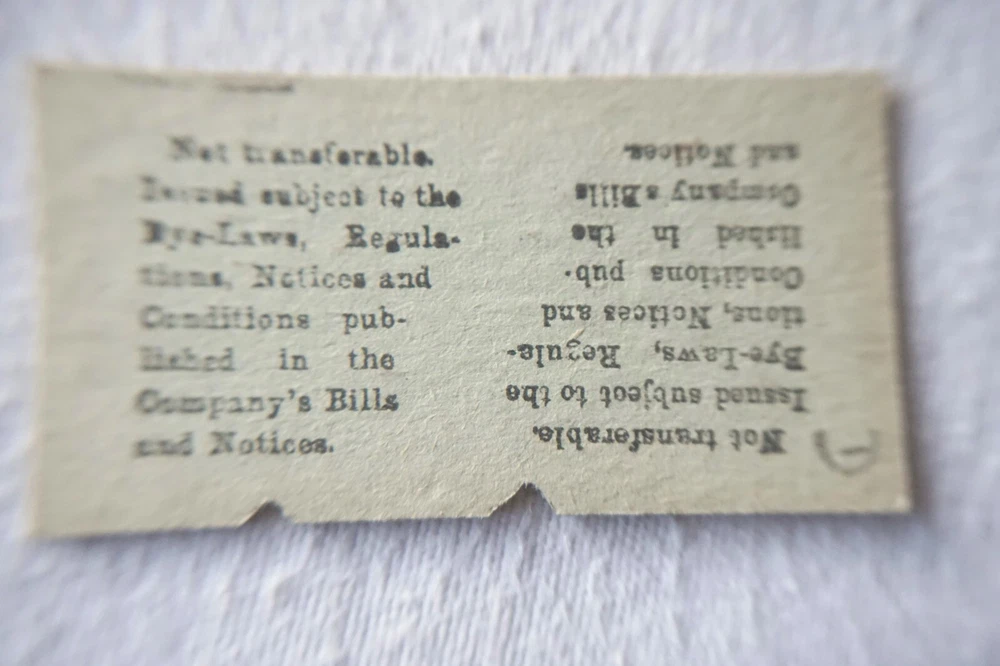 Not transferable.
Issued subject to the
Bye-Laws, Regula-
tions, Notices and
Conditions pub-
lished in the
Company's Bills
and Notices.
Not transferable.
Issued subject to the
Bye-Laws, Regula-
tions, Notices and
Conditions pub-
lished in the
Company's Bills
and Notices.